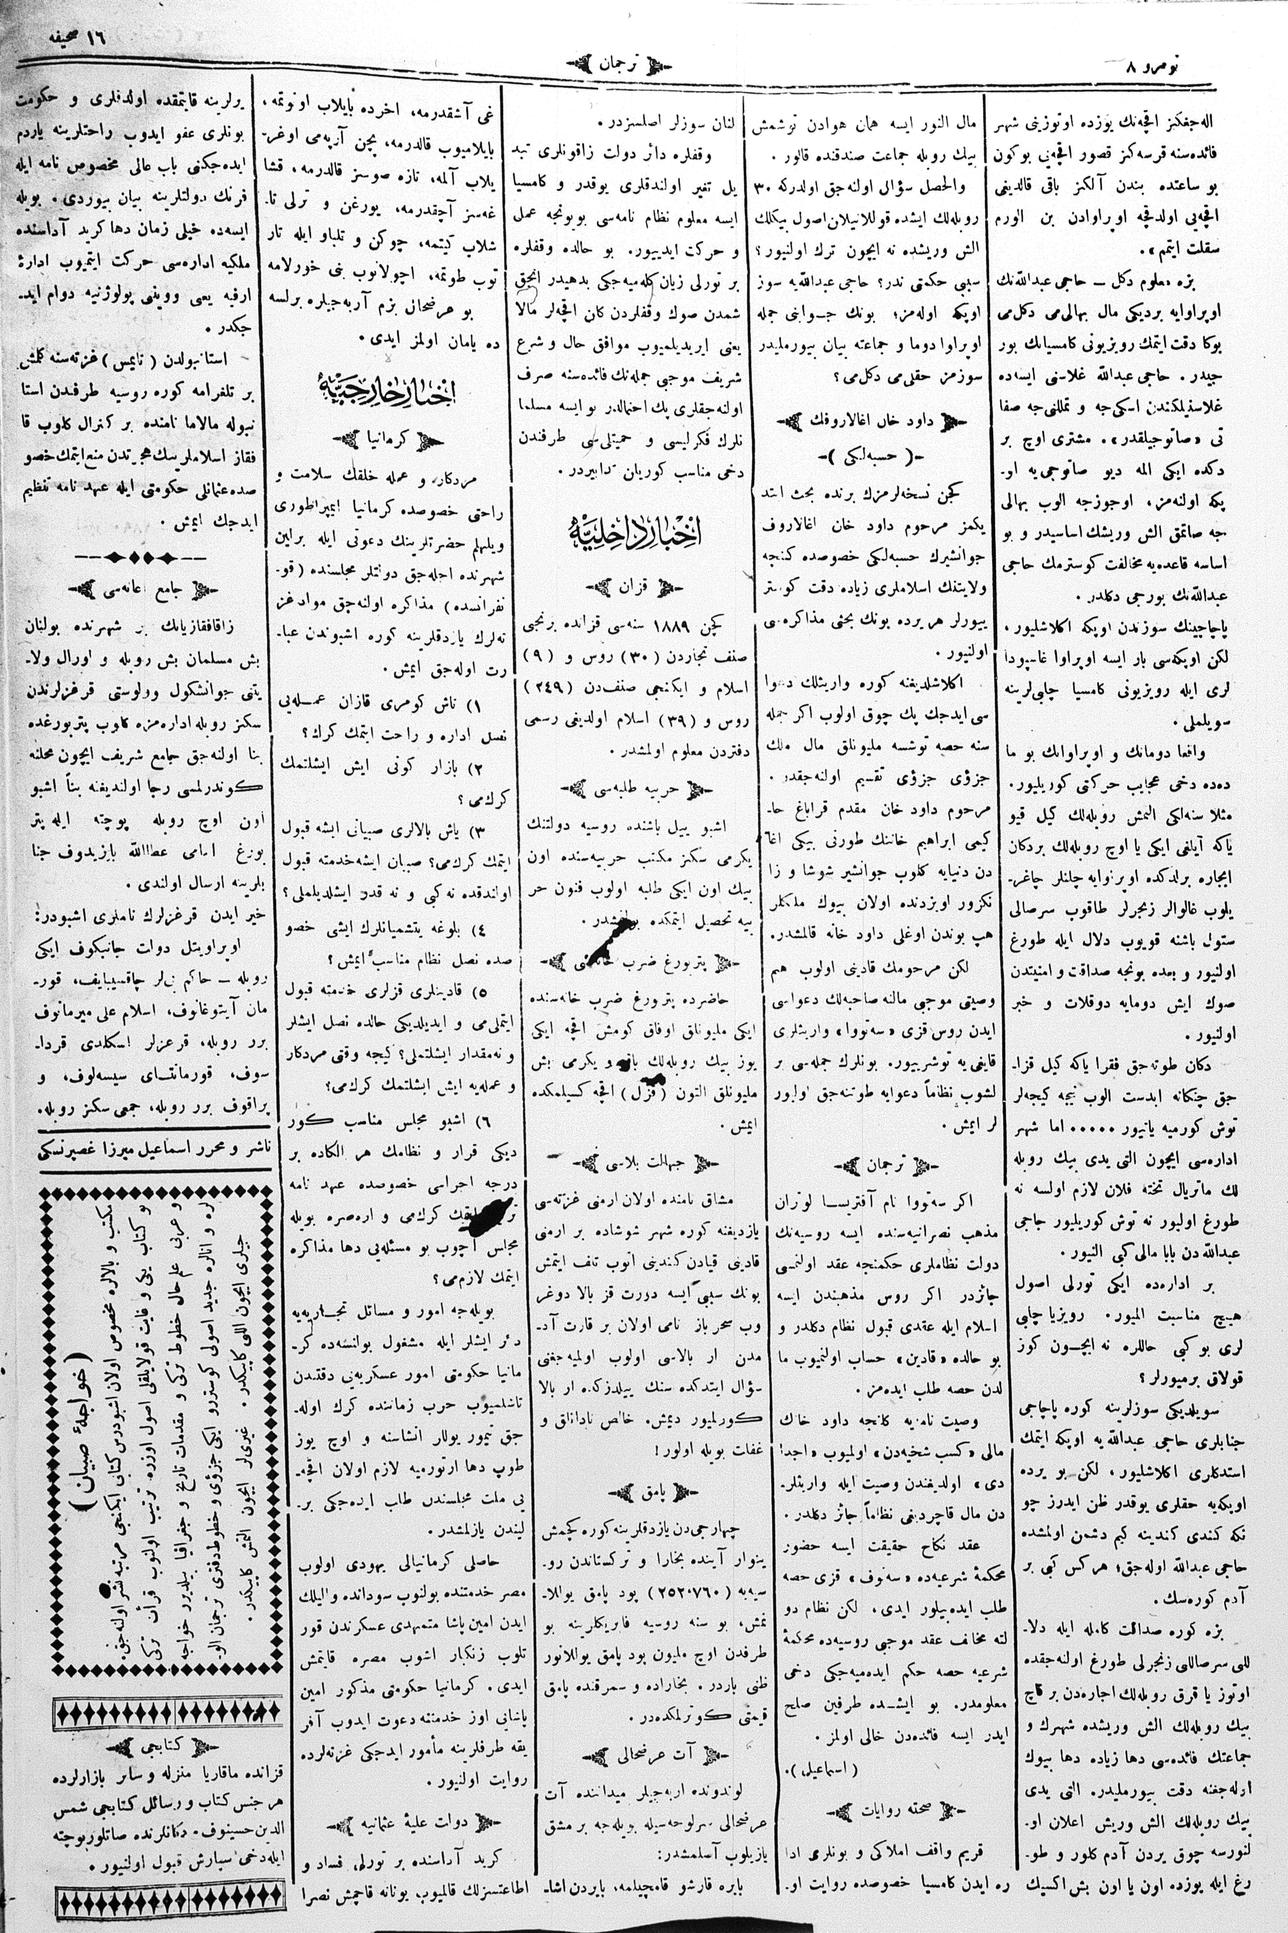 نومرو ٨
ترجمان
١٦ صحیفه
اله‌جغکز اقچه‌نك یوزده اوتوزینی شهر
فائده‌سنه قرسه‌کز قصور اقچه‌یی بوکون
بو ساعتده بندن آلکز باقی قالدیغی
اقچه‌یی اولدقچه اوپراوادن بن الورم
سقلت ایتم».
بزه معلوم دکل — حاجی عبداللّه‌نك
اوپراوایه بردیکی مال بهالی‌می دکل‌می
بوکا دقت ایتمك رویزیونی کامسیانك بور
جیدر. حاجی عبداللّه غلاسنی ایسه‌ده
تی «صاتوجیلقدر». مشتری اوچ بر
دکده ایکی المه دیو صاتوجی‌یه او-
پکه اولنه‌مز، اوجوزجه الوب بهالی
جه صاتمق الش وریشك اساسیدر و بو
اساسه قاعده‌یه مخالفت کوسترمك حاجی
عبداللّه‌نك بورجی دکلدر.
پاچاجینك سوزندن اوپکه اکلاشلیور،
لکن اوپکه‌سی بار ایسه اوپراوا غاسپودا
لری ایله رویزیونی کامسیا چلبی‌لرینه
سویلملی.
واقعا دومانك و اوپراوانك بو ما
ده‌ده دخی عجایب حرکتی کوریلیور.
مثلا سنه‌لکی التمش روبله‌لك کیل قیو
یاکه آیلغی ایکی یا اوچ روبله‌لك بردکان
ایجاره برلدکده اوپراوایه چلنلر چاغر-
یلوب غالوالر زنجرلر طاقوب سرصالی
ستول باشنه قویوب دلال ایله طورغ
اولنیور و بعده بونجه صداقت و امنیتدن
صوك ایش دومایه دوقلات و خبر
اولنیور.
دکان طوته‌جق فقرا یاکه کیل قزا-
جق چنکانه ابدست الوب نیجه کیجه‌لر
توش کورمیه یاتیور ..... اما شهر
اداره‌سی ایچون التی یدی بیك روبله
لك ماتریال تخته فلان لازم اولسه نه
طورغ اولیور نه توش کوریلیور حاجی
عبداللّه دن بابا مالی کبی النیور.
بر اداره‌ده ایکی تورلی اصول
هیچ مناسبت المیور. رویزیا چلبی
لری بو کبی حاللره نه ایچون کوز
قولاق برمیورلر؟
سویلدیکی سوزلرینه کوره پاچاجی
جنابلری حاجی عبداللّه یه اوپکه ایتمك
استدکلری اکلاشلیور، لکن بو یرده
اوپکه‌یه حقلری یوقدر ظن ایدرز چو
نکه کندی کندینه کیم دشمن اولمشده
حاجی عبداللّه اوله‌جق؛ هرکس کبی بر
آدم کوره‌سك.
بزه کوره صداقت کامله ایله دلا-
للی سرصاللی زنجرلی طورغ اوله‌جقده
اوتوز یا قرق روبله‌لك اجاره‌دن بر قاچ
بیك روبله‌لك الش وریشده شهرك و
جماعتك فائده‌سی دها زیاده دها بیوك
اوله‌جغنه دقت بیورملیدر. التی یدی
بیك روبله‌لك الش وریش اعلان او-
لنورسه چوق یردن آدم کلور و طو-
رغ ایله یوزده اون یا اون بش اکسیك
مال النور ایسه همان هوادن توشمش
بیك روبله جماعت صندقنده قالور.
والحصل سؤال اوله‌جق اولدرکه ٣٠
روبله‌لك ایشده قوللانیلان اصول بیکلك
الش وریشده نه ایچون ترك اولنیور؟
سببی حکمتی ندر؟ حاجی عبداللّه‌یه سوز
اوپکه اوله‌مز؛ بونك جوابنی جمله
اوپراوا دوما و جماعته بیان بیورملیدر
سوزمز حقلی‌می دکل‌می؟
داود خان اغالاروفك
-( حسبه‌لکی )-
کچن نسخه‌لرمزك برنده بحث ایتد
یکمز مرحوم داود خان اغالاروف
جوانشیرك حسبه‌لکی خصوصده کنجه
ولایتنك اسلاملری زیاده دقت کوستر
ییورلر هر یرده بونك بحثی مذاکره‌سی
اولنیور.
اکلاشلدیغنه کوره واریثلك دعوا
سی ایدجك پك چوق اولوب اکر جمله
سنه حصه توشسه ملیونلق مال ملك
جزؤی جزؤی تقسیم اوله‌جقدر.
مرحوم داود خان مقدم قراباغ حا-
کیمی ابراهیم خاننك طورنی بیکی اغا
دن دنیایه کلوب جوانشیر شوشا و زا
نکزور اویزدنده اولان بیوك ملکلر
هپ بوندن اوغلی داود خانه قالمشدر.
لکن مرحومك قادینی اولوب هم
وصیتی موجبی مالنه صاحبه‌لك دعواسی
ایدن روس قزی «سه‌توا» واریثلری
قایغی یه توشریبور. بونلرك جمله‌سی بر
لشوب نظاماً دعوایه طوتنه‌جق اولیور
لر ایمش.
ترجمان
اکر سه‌تووا نام آفتریسا لوتران
مذهب نصرانیه‌سنده ایسه روسیه‌نك
دولت نظاملری حکمنجه عقد اولنمسی
جائزدر اکر روس مذهبندن ایسه
اسلام ایله عقدی قبول نظام دکلدر و
بو حالده «قادین» حساب اولنمیوب ما
لدن حصه طلب ایده‌مز.
وصیت نامه‌یه کلنجه داود خانك
مالی «کسب شخیه‌دن» اولمیوب «اجدا
دی» اولدیغندن وصیت ایله واریثلر-
دن مال قاچردیغی نظاماً جائز دکلدر.
عقد نکاح حقیقت ایسه حضور
محکمهٔ شرعیه‌ده «سه‌نوف» قزی حصه
طلب ایده‌بیلور ایدی، لکن نظام دو
لته مخالف عقد موجبی روسیه‌ده محکمهٔ
شرعیه حصه حکم ایده‌میه‌جکی دخی
معلومدر. بو ایشده طرفین صلح
ایدر ایسه فائده‌دن خالی اولمز.
(اسماعیل).
صحته روایات
قریم واقف املاکی و بونلری ادا
ره ایدن کامسیا خصوصده روایت او-
لنان سوزلر اصلسزدر.
وقفلره دائر دولت زاقونلری تبد
یل تغیر اولندقلری یوقدر و کامسیا
ایسه معلوم نظام نامه‌سی بویونجه عمل
و حرکت ایدییور. بو حالده وقفلره
بر تورلی زیان کله‌میه‌جکی بدهیدر انجق
شمدن صوك وقفلردن کان اقچه‌لر مالا
یعنی ایریدیلمیوب موافق حال و شرع
شریف موجبی جمله‌نك فائده‌سنه صرف
اولنه‌جقلری پك احتمالدر بو ایسه مسلما
نلرك فکرلیسی و حمیتلی‌سی طرفندن
دخی مناسب کوریان تدابیردر.
اخبار داخلیه
قزان
کچن ١٨٨٩ سنه‌سی قزانده برنجی
صنف تجاردن (٣٠) روس و (٩)
اسلام و ایکنجی صنف‌دن (٢٤٩)
روس و (٣٩) اسلام اولدیغی رسمی
دفتردن معلوم اولمشدر.
حربیه طلبه‌سی
اشبو ییل باشنده روسیه دولتنك
یکرمی سکنز مکتب حربیه‌سنده اون
بیك اون ایکی طلبه اولوب فنون حر
بیه تحصیل ایتمکده بولنمشدر.
پتربورغ ضرب خانه‌سی
حاضرده پترورغ ضرب خانه‌سنده
ایکی ملیونلق اوفاق کومش اقچه ایکی
یوز بیك روبله‌لك باقر و یکرمی بش
ملیونلق التون (قزل) اقچه کسیلمکده
ایمش.
جهالت بلاسی
مشاق نامنده اولان ارمنی غزته‌سی
یازدیغنه کوره شهر شوشاده بر ارمنی
قادینی قیادن کندینی اتوب تلف ایتمش
بونك سببی ایسه دورت قز بالا دوغر
وب سحرباز نامی اولان بر قارت آد-
مدن ار بالاسی اولوب اولمیه‌جغنی
سؤال ایتدکده سنك ییلدزکده ار بالا
کورلمیور دیمش. خالص نادانلق و
غفلت بویله اولور!
پامق
چهارجی‌دن یازدقلرینه کوره کچمش
ینوار آینده بخارا و ترکستاندن رو-
سیه‌یه (٢٥٢٠٧٦٠) پود پامق یوللا-
نمش، بو سنه روسیه فابریکلرینه بو
طرفدن اوچ ملیون پود پامق یوللانور
ظنی باردر. بخاراده و سمرقنده پامق
قیمتی کوترلمکده‌در.
آت عرضحالی
لوندونده اربه‌جیلر میداننده آت
عرضحالی سرلوحه‌سیله بویله‌جه بر مشق
یازیلوب آسلمشدر:
بایره قارشو قامچیلمه، بایردن اشا-
غی آشقدرمه، اخرده بایلاب اونوتمه،
بایلامیوب قالدرمه، پچن آرپه‌می اوغر-
یلاب آلمه، تازه صوسز قالدرمه، قشا
غه‌سز آچقدرمه، یورغن و ترلی تا-
شلاب کیتمه، چوکن و تلباو ایله تار
توب طوتمه، اچولانوب بنی خورلامه
بو هرضحال بزم آربه‌جیلره برلسه
ده یامان اولمز ایدی.
اخبار خارجیه
کرمانیا
مردکار، و عمله خلقك سلامت و
راحتی خصوصده کرمانیا ایمپراطوری
ویلهلم حضرتلرینك دعوتی ایله برلین
شهرنده اجله‌جق دولتلر مجلسنده (قو-
نفرانسده) مذاکره اولنه‌جق مواد غز
ته‌لرك یازدقلرینه کوره اشبوندن عبا-
رت اوله‌جق ایمش.
١) تاش کومری قازان عمله‌یی
نصل اداره و راحت ایتمك کرك؟
٢) بازار کونی ایش ایشلتمك
کرك‌می؟
٣) یاش بالالری صبیانی ایشه قبول
ایتمك کرك‌می؟ صبیان ایشه‌خدمته قبول
اولندقده نه کبی و نه قدر ایشلدیلملی؟
٤) بلوغه یتشمیانلرك ایشی خصو
صده نصل نظام مناسب ایمش؟
٥) قادینلری قزلری خدمته قبول
ایتملی‌می و ایدیلدیکی حالده نصل ایشلر
و نه‌مقدار ایشلتملی؟ کیجه وقتی مردکار
و عمله‌یه ایش ایشلتمك کرك‌می؟
٦) اشبو مجلس مناسب کور
دیکی قرار و نظامك هر الکاده بر
درجه اجراسی خصوصده عهد نامه
کرك‌می و اره‌صره بویله
مجلس آچوب بو مسئله‌یی دها مذاکره
ایتمك لازم‌می؟
بویله‌جه امور و مسائل تجاریه‌یه
دئر ایشلر ایله مشغول بولنسه‌ده کر-
مانیا حکومتی امور عسکریه‌یی دقتندن
تاشلمیوب حرب زماننده کرك اوله-
جق تیمور یوللر انشاسنه و اوچ یوز
طوپ دها ارتورمیه لازم اولان اقچه-
یی ملت مجلسندن طلب ایده‌جکی بر-
لیندن یازلمشدر.
حاصلی کرمانیالی یهودی اولوب
مصر خدمتنده بولنوب سوداندە والیلك
ایدن امین پاشا متمهدی عسکرندن قور
تلوب زنکبار اشوب مصره قایتمش
ایدی. کرمانیا حکومتی مذکور امین
پاشایی اوز خدمتنه دعوت ایدوب آفر
یقه طرفلرینه مأمور ایدجکی غزته‌لرده
روایت اولنیور.
دولت علیهٔ عثمانیه
کرید آداسنده بر تورلی، فساد و
اطاعتسزلك قالمیوب یونانه قاچمش نصرا
یرلرینه قایتمقده اولدقلری و حکومت
بونلری عفو ایدوب راحتلرینه یاردم
ایده‌جکنی باب عالی مخصوص نامه ایله
فرنك دولتلرینه بیان بیوردی. بویله
ایسه‌ده خیلی زمان دها کرید آداسنده
ملکیه اداره‌سی حرکت ایتمیوب ادارهٔ
ارفیه یعنی ووینی پولوژنیه دوام اید-
جکدر.
استانبولدن (تایمس) غزته‌سنه کلمش
بر تلغرامه کوره روسیه طرفندن استا
نبوله مالاما نامنده بر کنرال کلوب قا
فقاز اسلاملرینك هجرتدن منع ایتمك خصو
صده عثمانلی حکومتی ایله عهد نامه تنظیم
ایدجك ایمش.
جامع اعانه‌سی
زاقافقازیانك بر شهرنده بولنان
بش مسلمان بش روبله و اورال ولا-
یتی جوانشکول وولوستی قرغزلرندن
سکنز روبله اداره‌مزه کلوب پتربورغده
بنا اولنه‌جق جامع شریف ایچون محلنه
کوندرلمسی رجا اولندیغنه بنأ اشبو
اون اوچ روبله پوچته ایله پتر
بورغ امامی عطااللّه بایزیدوف جنا
بلرینه ارسال اولندی.
خیر ایدن قرغزلرك ناملری اشبودر:
اوپراویتل دولت جانبکوف ایکی
روبله — حاکم بی‌لر چاقسیبایف، قور-
مان آیتوغانوف، اسلام علی میرمانوف
برر روبله، قرغزلر اسکلدی قردا-
سوف، قورمانتای سیسه‌لوف، و
پراقوف برر روبله، جمعی سکنز روبله.
ناشر و محرر اسماعیل میرزا غصپرنسکی
(خواجهٔ صبیان)
مکتب و بالالره مخصوص اولان اشبودرس کتابی ایکنجی مرتبه نشر اوله‌جق.
بو کتاب یکی و غایت قولایلقلی اصول اوزره ترتیب اولنوب قرأت ترکی
و عربی علم حال خطوط ترکی و مقدمات تاریخ و جغرافیا بیلدیرر خواجه
لره و انالره جدید اصولی کوسترر ایکی جزؤی و خطوط دفتری ترجمان الو
جیلری ایچون اللی کاپیکدر. غیری‌لر ایچون التمش کاپیکدر.
کتابجی
قزانده ماقاریا منزله و سائر بازارلرده
هر جنس کتاب و رسائل کتابجی شمس
الدین حسینوف دکانلرنده صاتلور پوچته
ایله دخی سپارش قبول اولنیور.